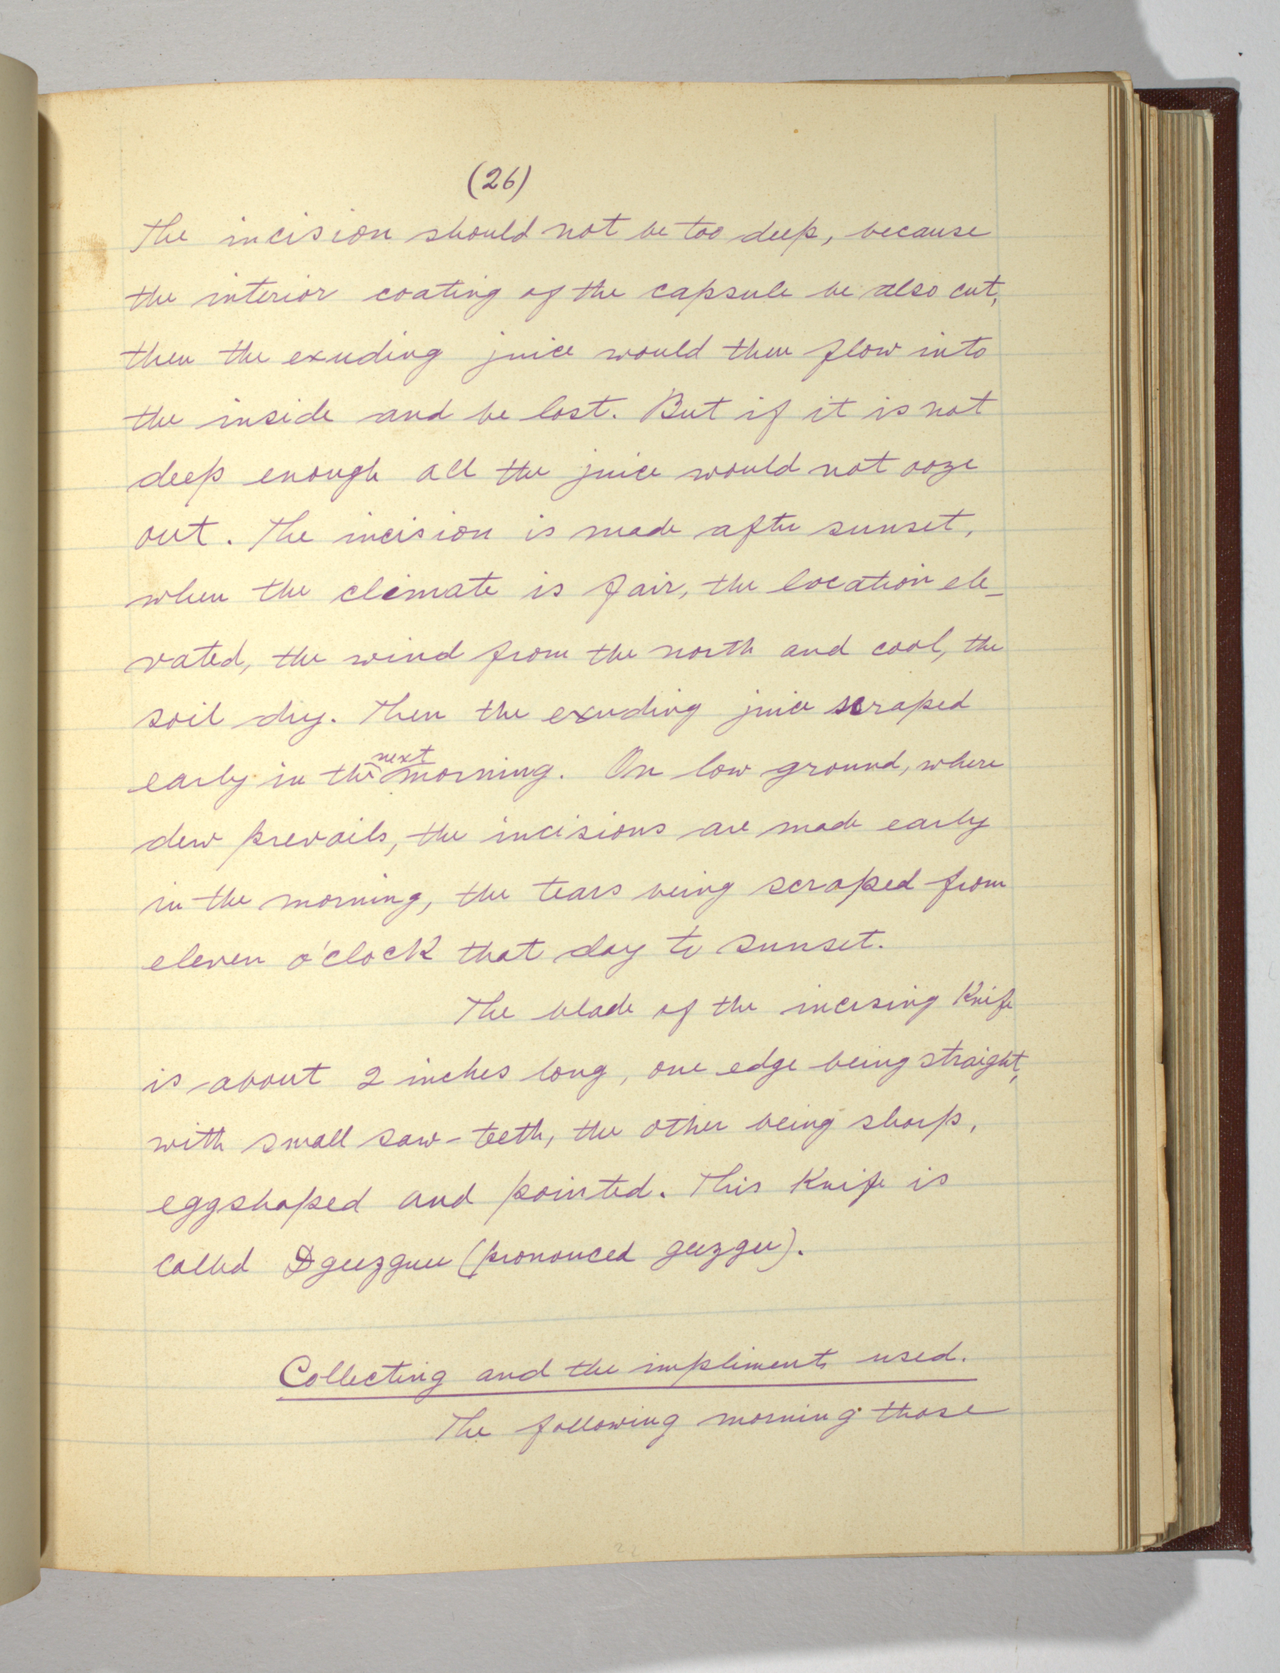 (26)
The incision should not be too deep, because
the interior coating of the capsule be also cut,
then the exuding juice would then flow into
the inside and be lost. But if it is not
deep enough all the juice would not ooze
out. The incision is made after sunset,
when the climate is fair, the location ele-
vated, the wind from the north and cool, the
soil dry. Then the exuding juice scraped
early in the next morning. On low ground, where
dew prevails, the incisions are made early
in the morning, the tears being scraped from
eleven o'clock that day to sunset.
The blade of the incising Knife
is about 2 inches long, one edge being straight,
with small saw-teeth, the other being sharp,
eggshaped and pointed. This Knife is
called (pronouced geezgee).
Collecting and the impliments used.
The following morning those